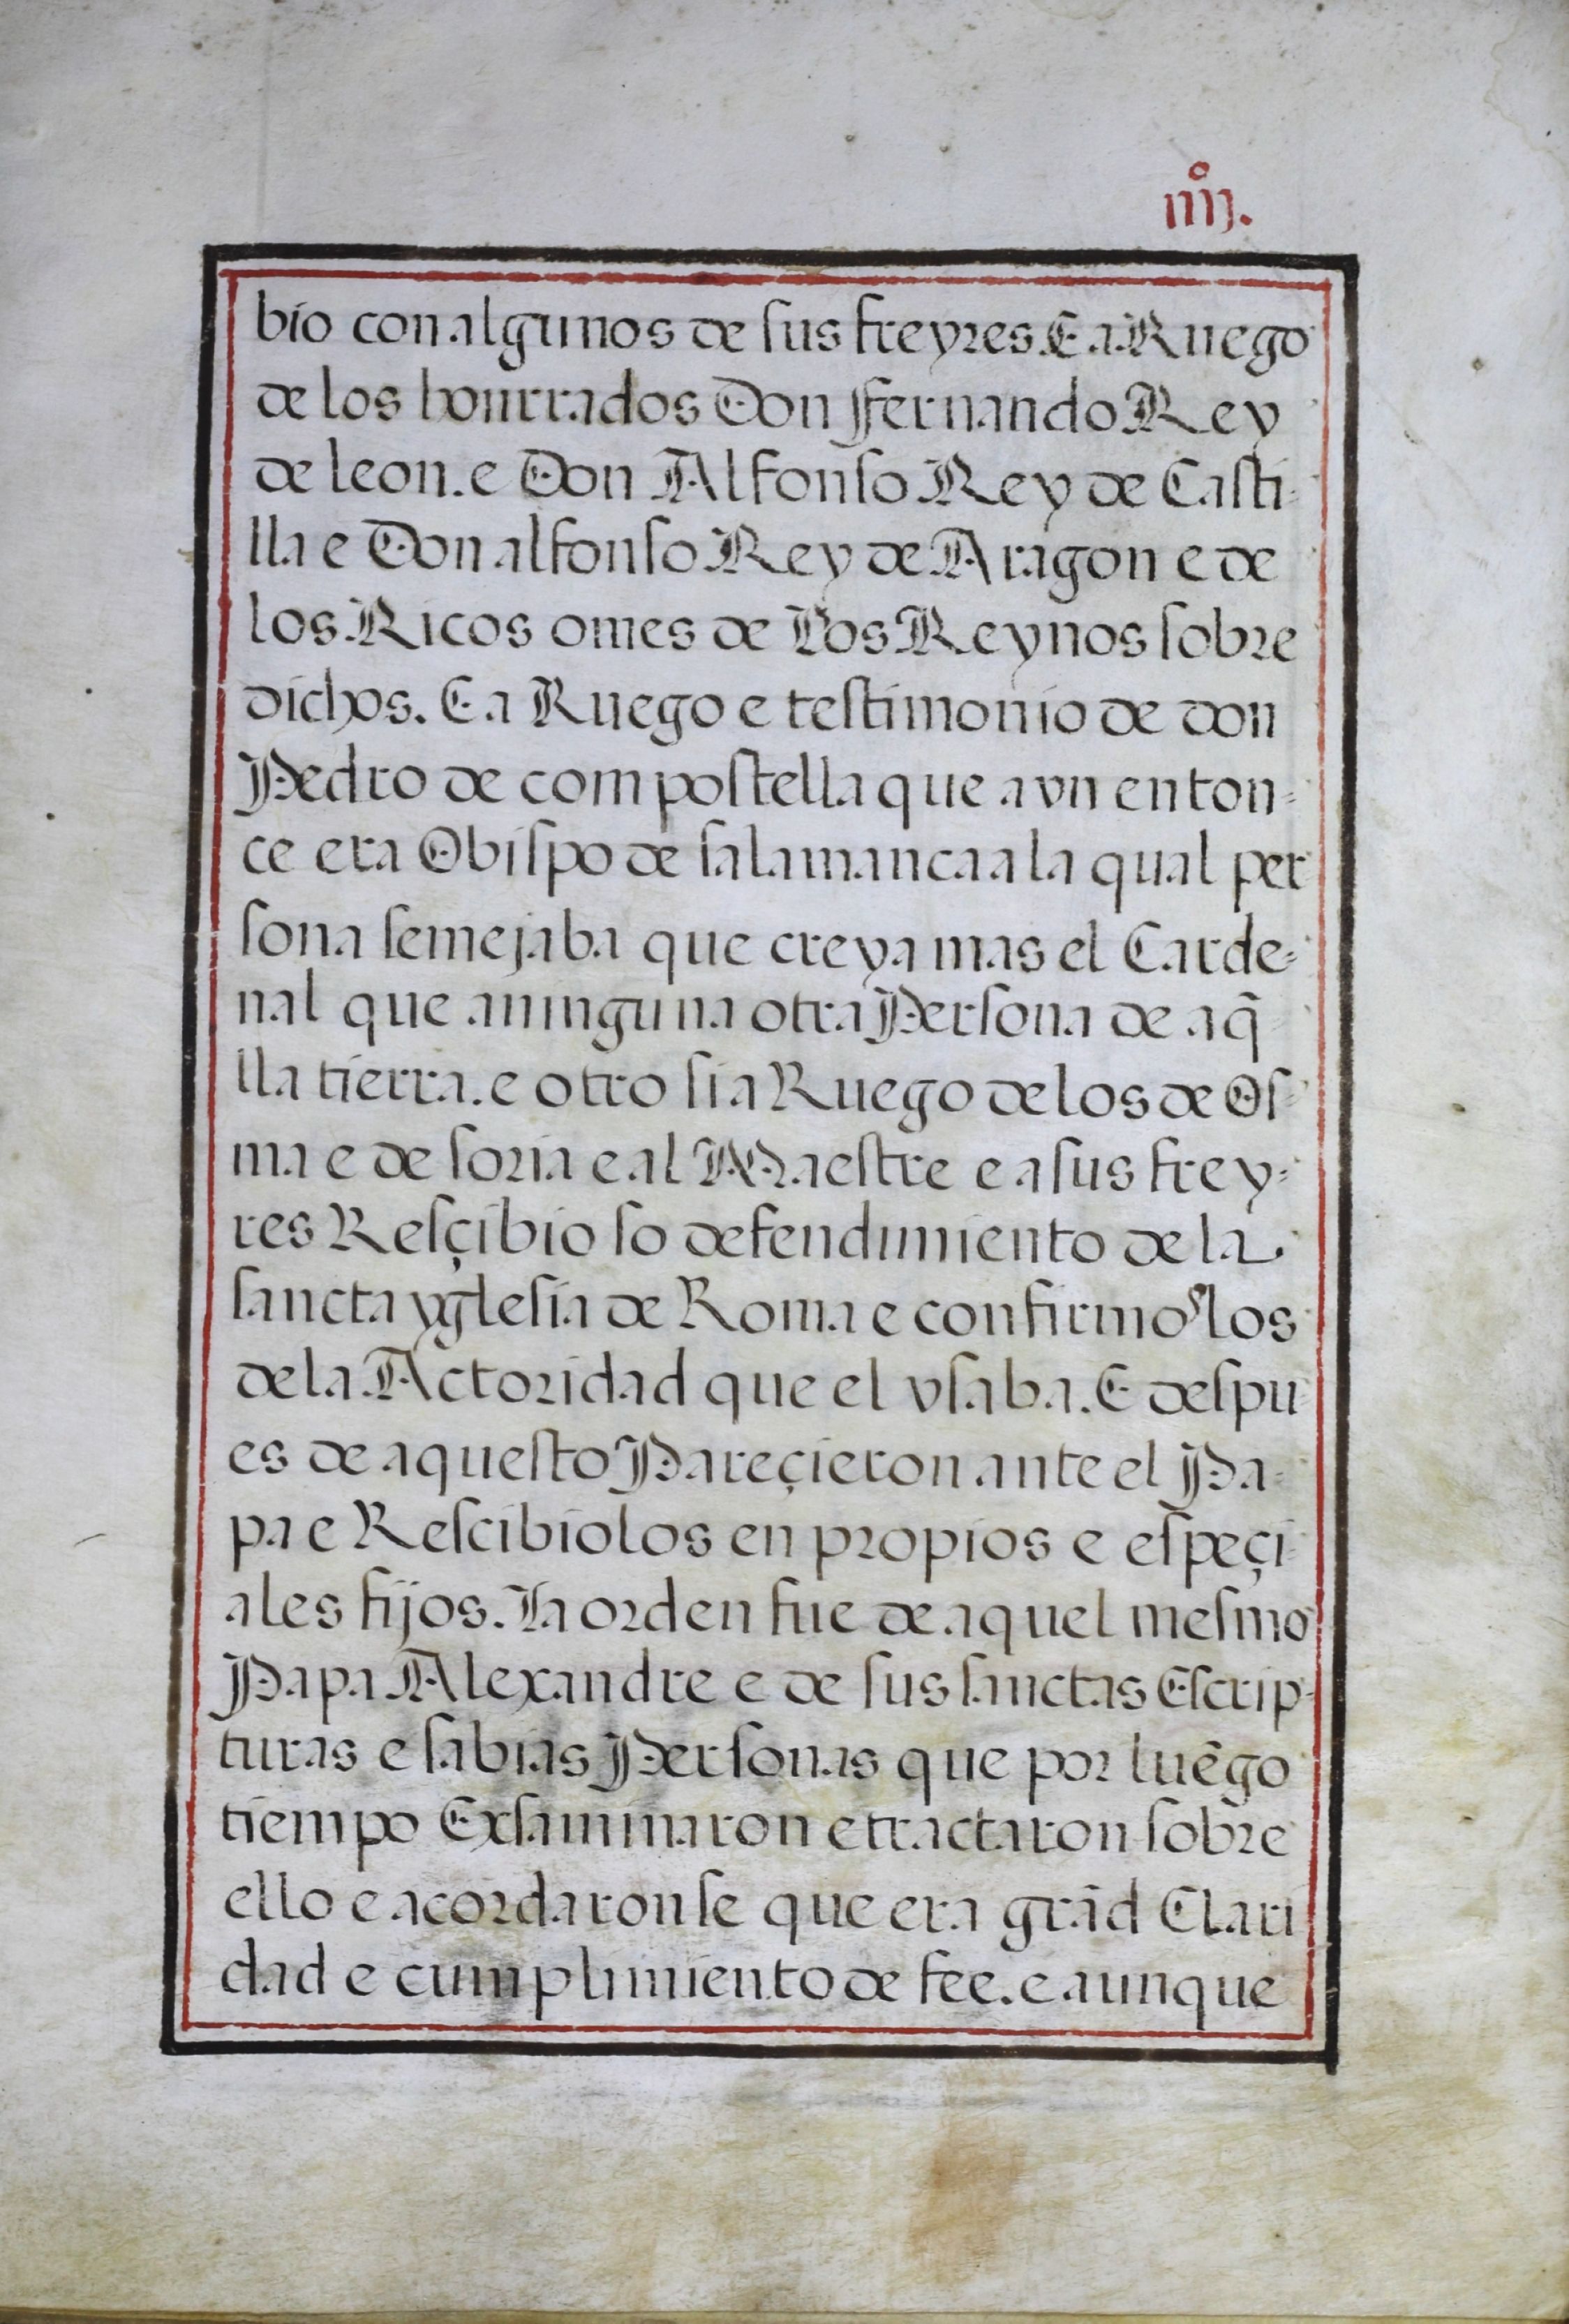 iiij.º
bio con algunos de sus freyres. E a Ruego
de los honrrados Don Fernando Rey
de leon. e Don Alfonso Rey de Casti-
lla e Don alfonso Rey de Aragon e de
los Ricos omes de Los Reynos sobre
dichos. E a Ruego e testimonio de don
Pedro de compostella que avn enton-
ce era Obispo de salamanca a la qual per
sona semejaba que creya mas el Carde-
nal que a ninguna otra Persona de aq̃
lla tierra. e otro si a Ruego de los de Os-
ma e de soria e al Maestre e a sus frey-
res Resçibio so defendimiento de la
sancta yglesia de Roma e confirmo los
de la Actoridad que el vsaba. E despu
es de aquesto Pareçieron ante el Pa-
pa e Rescibiolos en propios e espeçi
ales fijos. La orden fue de aquel mesmo
Papa Alexandre e de sus sanctas Escrip-
turas e sabias Personas que por luẽgo
tiempo Exsaminaron e tractaron sobre
ello e acordaron se que era grãd Clari
dad e cumplimiento de fee. e aunque